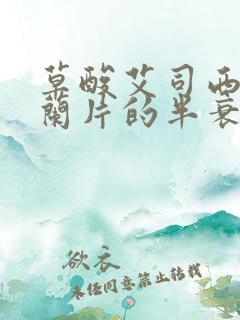 草酸艾司西
阑片的半衰
欲衣
未经同意禁止转载